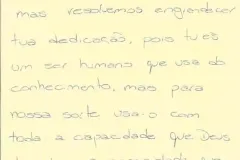 mas resolvemos engrandecer
tua dedicação, pois tu es
um ser humano que usa do
conhecimento, mas para
nossa sorte usa o com
toda a capacidade que Deus